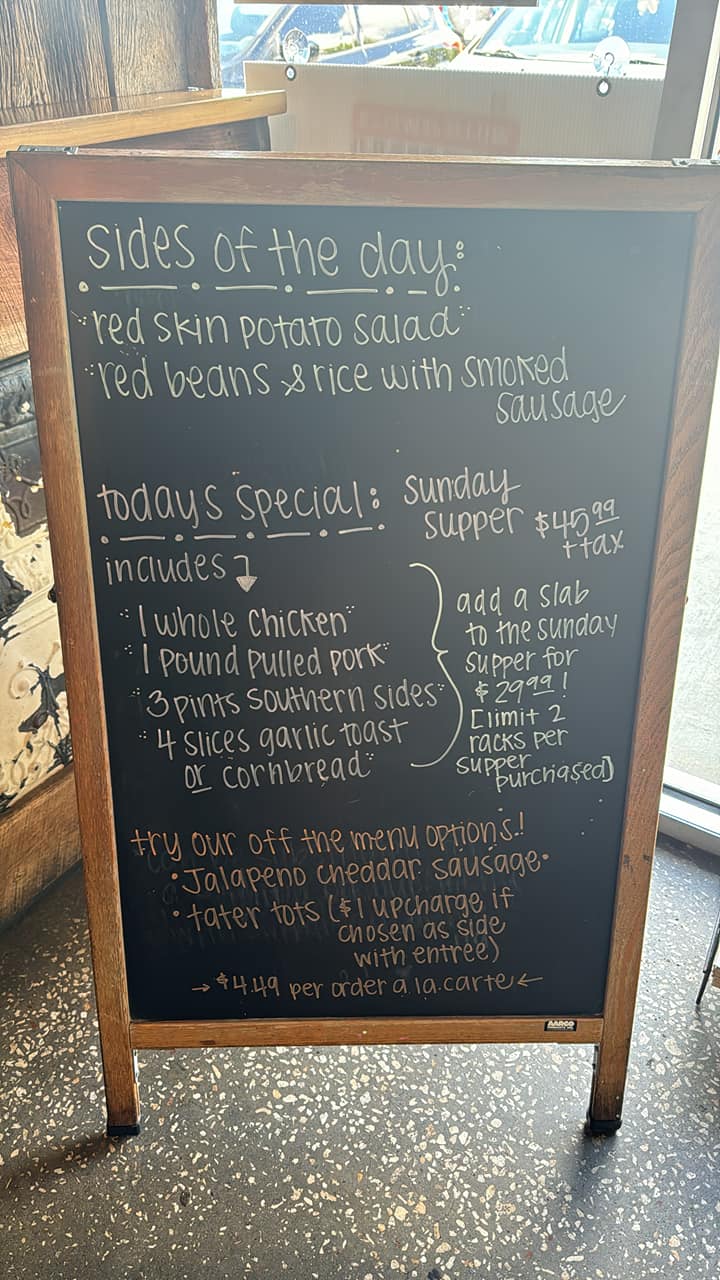 sides of the day:
red skin potato salad
red beans & rice with smoked
sausage
todays special: sunday
supper $45.99
+tax
includes
1 whole chicken
1 pound pulled pork
3 pints southern sides
4 slices garlic toast
or cornbread
add a slab
to the sunday
supper for
$29.99!
[limit 2
racks per
supper
purchased]
try our off the menu options!
• Jalapeno cheddar sausage •
• tater tots ($1 upcharge if
chosen as side
with entree)
→ $4.49 per order a la carte ←
AARCO